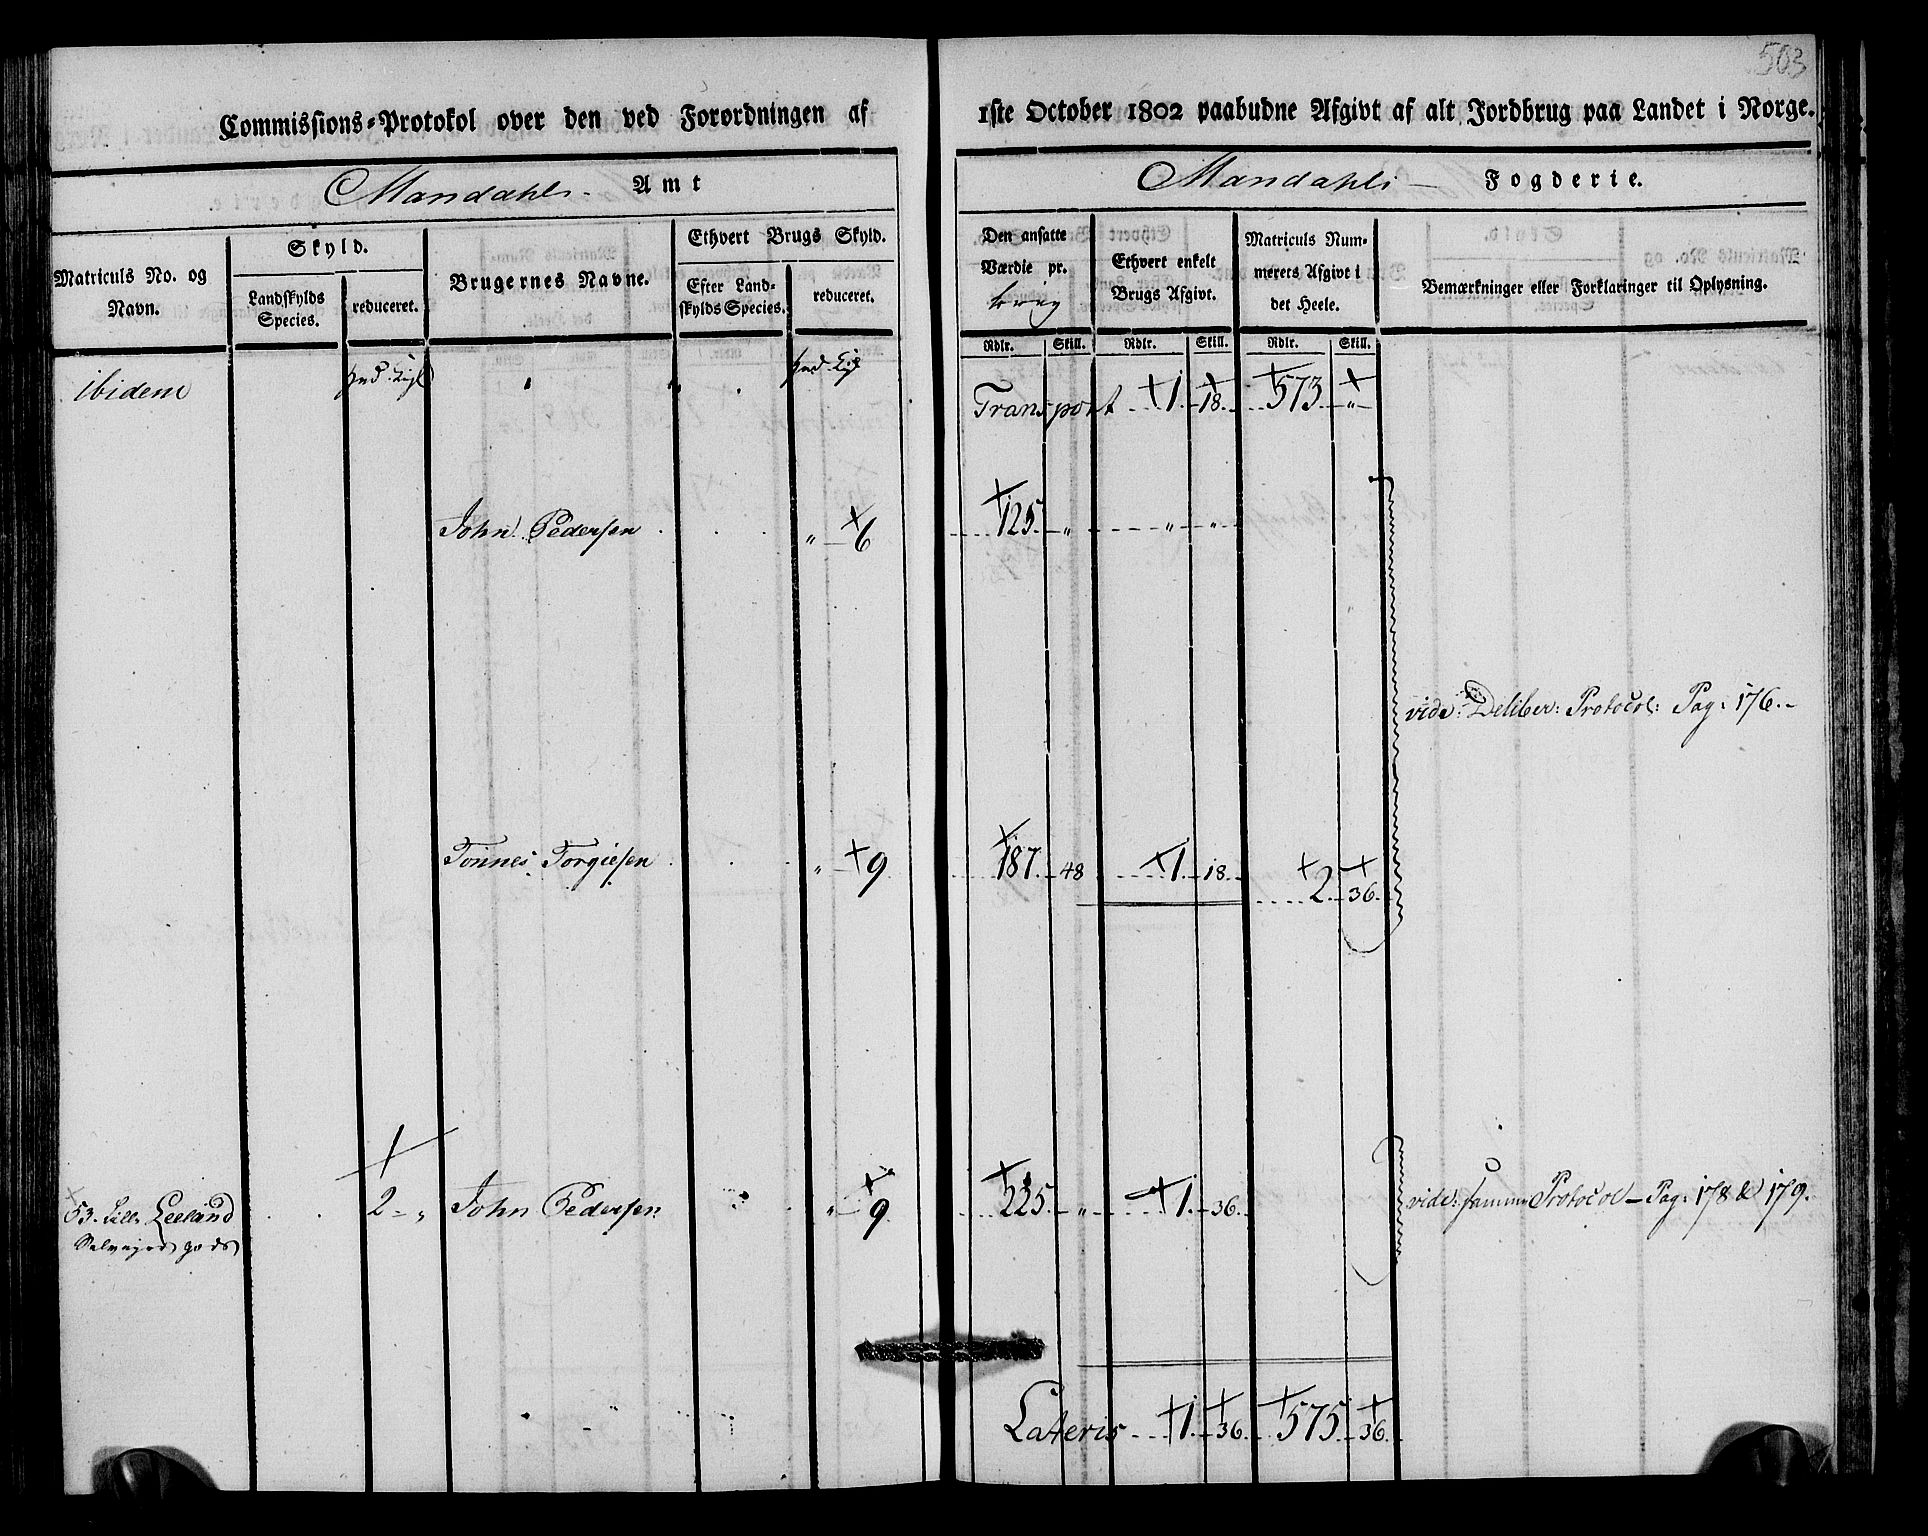 503
Commissions-Protokol over den ved Forordningen af 1ste October 1802 paabudne Afgivt af alt Jordbrug paa Landet i Norge.
Mandahls Amt
Mandahls Fogderie.
Matriculs No. og Navn.
Skyld.
Landskylds Species.
reduceret.
Brugernes Navne.
Ethvert Brugs Skyld.
Efter Landskylds Species.
reduceret.
Den ansatte Værdie pr.
Ethvert enkelt Brugs Afgivt.
Matriculs Nummerets Afgivt i det Heele.
Bemærkninger eller Forklaringer til Oplysning.
Rdlr. Skill. Rdlr. Skill. Rdlr. Skill.
ibidem
Transport 1 18 573 "
John Pedersen " 6 125 " " "
vide: Deliber: Protocol: Pag: 176.
Tönnes Torgiesen " 9 187 48 1 18 2 36
53. Lille Leeland 2 " John Pedersen " 9 225 " 1 36 vide: samme Protocol - Pag: 178 & 179.
Selvejer gods
Lateris 1 36 575 36